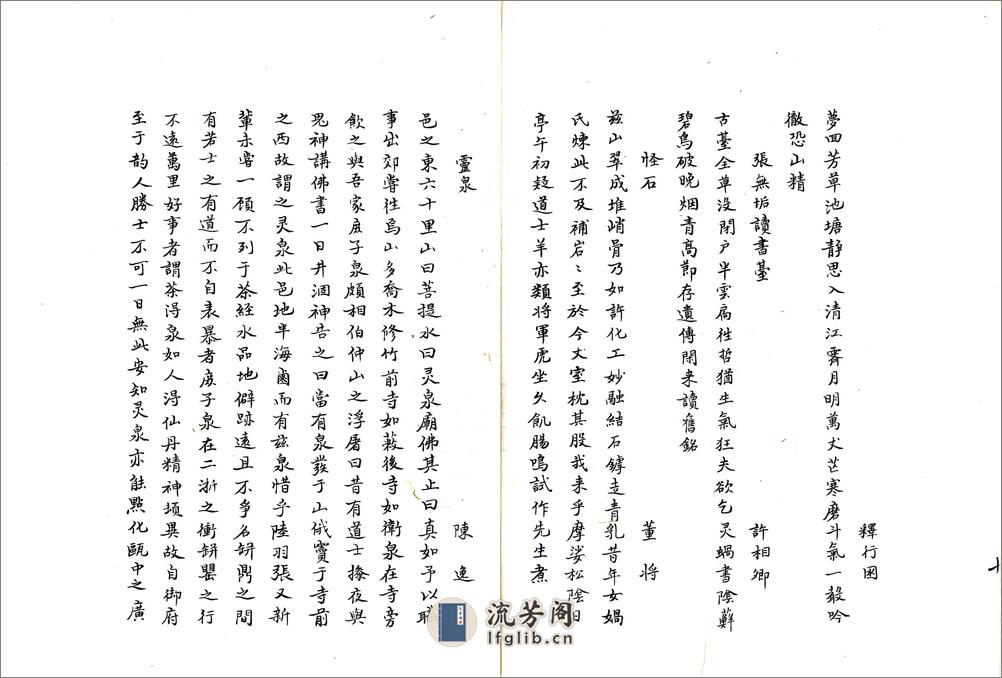 釋行囦
夢回芳草池塘靜思入清江霽月明萬丈芒寒磨斗氣一聲吟
徹恐山精
張無垢讀書臺 許相卿
古臺全草没閑户半雲扃徃哲猶生氣狂夫欲乞灵蝸書陰蘚
碧鳥破晚烟青高節存遺傳閑来讀舊銘
怪石 董將
兹山翠成堆峭骨乃如許化工妙融結石罅走青乳昔年女媧
氏煉此不及補岩〻至於今丈室枕其股我来乎摩娑松陰日
亭午初疑道士羊亦類将軍虎坐久飢腸鳴試作先生煮
靈泉 陳逸
邑之東六十里山曰菩提水曰灵泉廟佛其上曰真如予以職
事出郊嘗徃焉山多喬木修竹前寺如蔽後寺如衛泉在寺旁
飲之與吾家庶子泉頗相伯仲山之浮屠曰昔有道士掾夜與
鬼神講佛書一日井涸神告之曰當有泉發于山俄竇于寺前
之西故謂之灵泉此邑地半海鹵而有兹泉惜乎陸羽張又新
輩未嘗一顧不列于茶經水品地僻跡遠且不争名缾鼎之間
有若士之有道而不自表暴者庶子泉在二浙之衝缾罌之行
不遠萬里好事者謂茶得泉如人淂仙丹精神頓異故自御府
至于韵人勝士不可一日無此安知灵泉亦能點化甌中之廣
十
流芳阁
lfglib.cn